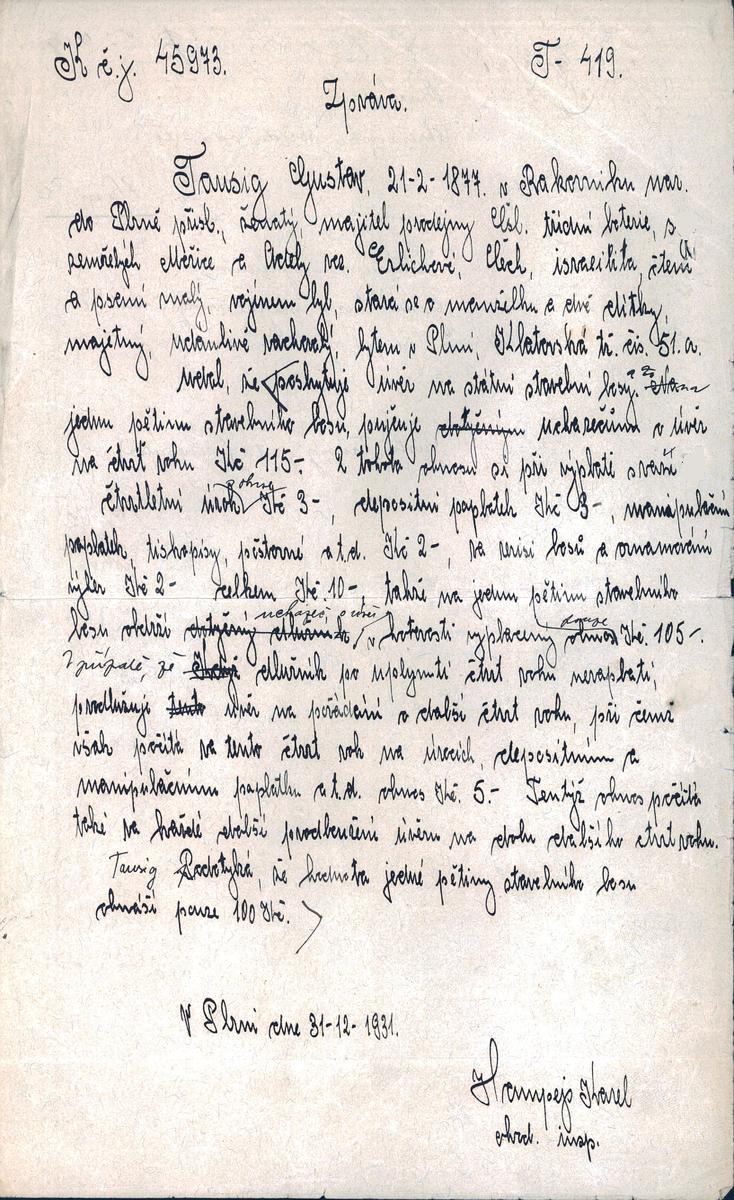 K č.j. 45973. T- 419.
Zpráva.
Tausig Gustav, 21-2-1877. v Rakovníku nar.
do Plzně přísl., ženatý, majitel prodejny Čsl. třídní loterie, s
zemřelých Mořice a Adély roz. Erlichové, Čech, israelita, čtení
a psaní znalý, vojínem byl, stará se o manželku a dvě dítky,
majetný, udánlivě zachovalý, bytem v Plzni, Klatovská tř. čís. 51.a.
Udal, že poskytuje úvěr na státní stavební losy, a za
jednu pětinu stavebního losu, půjčuje dotyčným uchazečům o úvěr
na čtvrt roku Kč 115-. Z tohoto obnosu si při výplatě sráží
čtvrtletní úrok obnos Kč 3-, depositní poplatek Kč 3-, manipulační
poplatek, tiskopisy, poštovné a.t.d. Kč 2-, za revisi losů a oznamování
výher Kč 2- celkem Kč 10-, takže na jednu pětinu stavebního
losu obdrží dotyčný dlužník uchazeč o úvěr, v hotovosti vyplaceny pouze obnos Kč. 105-.
V případě, že dlužník po uplynutí čtvrt roku nezaplatí,
prodlužuje tento úvěr na požádání o další čtvrt roku, při čemž
však počítá za tento čtvrt rok na úrocích, depositním a
manipulačním poplatku a.t.d. obnos Kč. 5.- Tentýž obnos počítá
také za každé další prodloužení úvěru na dobu dalšího čtvrt roku.
Tausig Podotýká, že hodnota jedné pětiny stavebního losu
obnáší pouze 100 Kč.
V Plzni dne 31-12-1931.
Hampejs Karel
obvd. insp.